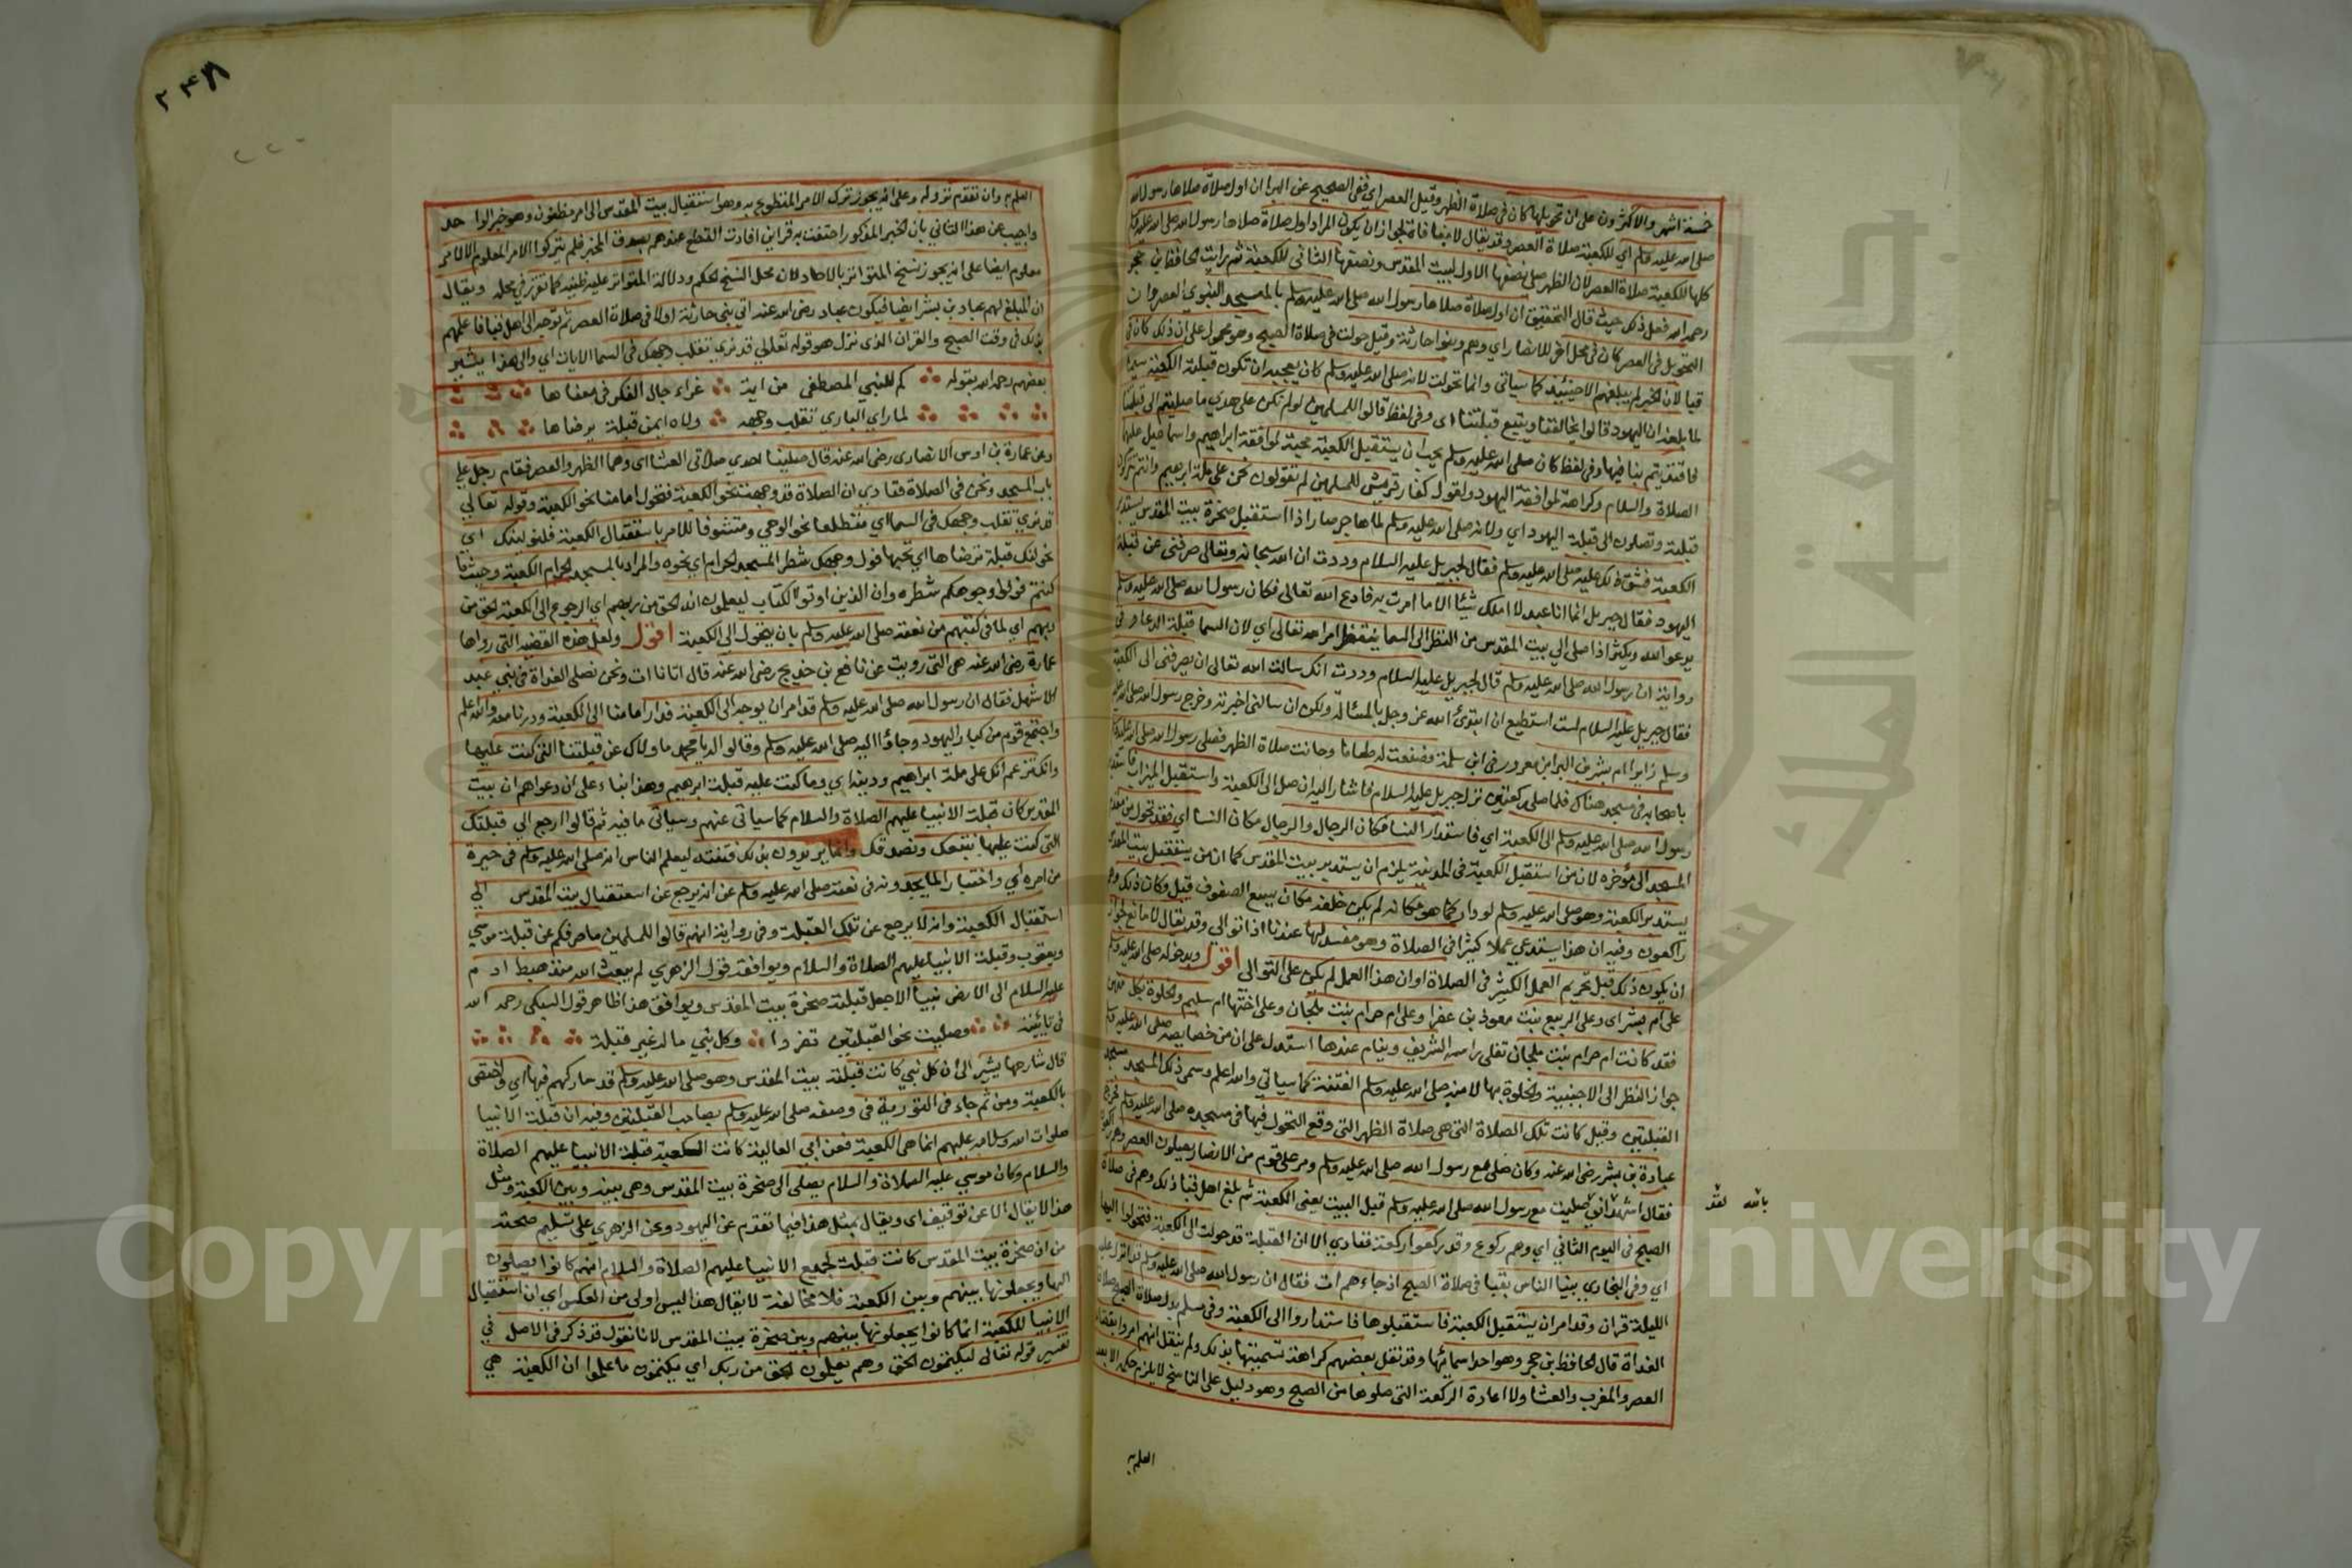 خمسة اشهر والاكثرون على ان تحويلها كان في صلاة الظهر وقيل العصر اي ففي الصحيح عن البرا ان اول صلاة صلاها رسول الله
صلى الله عليه وسلم اي للكعبة صلاة العصر وقد يقال لا منافاة لجواز ان يكون المراد اول صلاة صلاها رسول الله صلى الله عليه وسلم
كلها للكعبة صلاة العصر لان الظهر صلى نصفها الاول لبيت المقدس ونصفها الثاني للكعبة ثم رايت الحافظ بن حجر
رحمه الله فعل ذلك حيث قال التحقيق ان اول صلاة صلاها رسول الله صلى الله عليه وسلم بالمسجد النبوي العصر وان
التحويل في العصر كان في محل اخر للانصار اي وهم وبنوا حارثة وقيل حولت في صلاة الصبح وهو محمول على ان ذلك كان في
قبا لان الخبر لم يبلغهم الا حينئذ كما سياتي وانما تحولت لانه صلى الله عليه وسلم كان يعجبه ان تكون قبلته الكعبة سيما
لما بلغه ان اليهود قالوا يخالفنا ويتبع قبلتنا اي وفي لفظ قالوا للمسلمين لو لم نكن على هدي ما صليتم الى قبلتنا
فاقتديتم بنا فيها وفي لفظ كان صلى الله عليه وسلم يحب ان يستقبل الكعبة محبة لموافقة ابراهيم واسماعيل عليهما
الصلاة والسلام وكراهة لموافقة اليهود ولقول كفار قريش للمسلمين لم تقولون نحن على ملة ابرهيم وانتم تتركون
قبلته وتصلون الى قبلة اليهود اي ولانه صلى الله عليه وسلم لما هاجر صار اذا استقبل صخرة بيت المقدس يستدبر
الكعبة فشق ذلك عليه صلى الله عليه وسلم فقال لجبريل عليه السلام وددت ان الله سبحانه وتعالى صرفني عن قبلة
اليهود فقال جبريل انما انا عبد لا املك شيئا الا ما امرت به فادع الله تعالى فكان رسول الله صلى الله عليه وسلم
يدعو الله ويكثر اذا صلى الي بيت المقدس من النظر الى السما ينتظر امر الله تعالى اي لان السما قبلة الدعا وفي
رواية ان رسول الله صلى الله عليه وسلم قال لجبريل عليه السلام وددت انك سالت الله تعالى ان يصرفني الى الكعبة
فقال جبريل عليه السلام لست استطيع ان ابتدئ الله عز وجل بالمسئالة ولكن ان سالني اخبرته وخرج رسول الله صلى الله عليه
وسلم زايرا ام بشر بن البرا بن معرور في بني سلمة فصنعت له طعاما وحانت صلاة الظهر فصلى رسول الله صلى الله عليه وسلم
باصحابه في مسجد هناك فلما صلى ركعتين نزل جبريل عليه السلام فاشار اليه ان صل الى الكعبة واستقبل الميزاب فاستدار
رسول الله صلى الله عليه وسلم الى الكعبة اي فاستدار النسا مكان الرجال والرجال مكان النسا اي فقد تحول من مقدم
المسجد الى مؤخره لان من استقبل الكعبة في المدينة يلزم ان يستدبر بيت المقدس كما ان من يستقبل بيت المقدس
يستدبر الكعبة وهو صلى الله عليه وسلم لو دار كما هو مكانه لم يكن خلفه مكان يسع الصفوف قيل وكان ذلك وهم
راكعون وفيه ان هذا يستدعي عملا كثيرا في الصلاة وهو مفسد لها عندنا اذا توالي وقد يقال لا مانع لجواز
ان يكون ذلك قبل تحريم العمل الكثير في الصلاة او ان هذا العمل لم يكن على التوالي اقول ويدخوله صلى الله عليه وسلم
على ام بشر اي وعلى الربيع بنت معوذ بن عفرا وعلى ام حرام بنت ملحان وعلى اختها ام سليم والخلوة بكل منهن
فقد كانت ام حرام بنت ملحان تفلي راسه الشريف وينام عندها استدل على ان من خصايصه صلى الله عليه وسلم
جواز النظر الى الاجنبية والخلوة بها لامنه صلى الله عليه وسلم الفتنة كما سياتي والله اعلم وسمي ذلك المسجد مسجد
القبلتين وقيل كانت تلك الصلاة التي هي صلاة الظهر التي وقع التحول فيها في مسجده صلى الله عليه وسلم فخرج
عبادة بن بشر رضي الله عنه وكان صلى مع رسول الله صلى الله عليه وسلم ومر على قوم من الانصار يصلون العصر وهم راكعون
فقال اشهد اني صليت مع رسول الله صلى الله عليه وسلم قبل البيت يعني الكعبة ثم بلغ اهل قبا ذلك وهم في صلاة
الصبح في اليوم الثاني اي وهم ركوع وقد ركعوا ركعة فنادي الا ان القبلة قد حولت الى الكعبة فتحولوا اليها
اي وفي البخاري بينا الناس بقبا في صلاة الصبح اذ جاءهم ات فقال ان رسول الله صلى الله عليه وسلم قد انزل عليه
الليلة قران وقد امر ان يستقبل الكعبة فاستقبلوها فاستداروا الى الكعبة وفي مسلم بدل صلاة الصبح صلاة
الغداة قال الحافظ بن حجر وهو احد اسمائها وقد نقل بعضهم كراهة تسميتها بذلك ولم ينقل انهم امروا بقضا
العصر والمغرب والعشا ولا اعادة الركعة التي صلوها من الصبح وهو دليل على ان الناسخ لا يلزم حكمه الا بعد
العلم به
بالله لقد
۲۴۸
العلم به وان تقدم نزوله وعلى انه يجوز ترك الامر المقطوع به وهو استقبال بيت المقدس الى امر مظنون وهو خبر الواحد
واجيب عن هذا الثاني بان الخبر المذكور احتفت به قراين افادت القطع عندهم بصدق المخبر فلم يتركوا الامر المعلوم الا لامر
معلوم ايضا على انه يجوز نسخ المتواتر بالاحاد لان محل النسخ الحكم ودلالة المتواتر عليه ظنية كما تقرر في محله ويقال
ان المبلغ لهم عباد بن بشر ايضا فيكون عباد رضي الله عنه اتي بني حارثة اولا في صلاة العصر ثم توجه الى اهل قبا فاعلمهم
بذلك في وقت الصبح والقران الذي نزل هو قوله تعالى قد نري تقلب وجهك في السما الايات اي والى هذا يشير
بعضهم رحمه الله بقوله كم للنبي المصطفى من اية غراء حال الفكر في معناها
لما راي الباري تقلب وجهه ولاه ايمن قبلة يرضاها
وعن عمارة بن اوس الانصاري رضي الله عنه قال صلينا احدي صلاتي العشا اي وهما الظهر والعصر فقام رجل علي
باب المسجد ونحن في الصلاة فنادي ان الصلاة قد وجهت نحو الكعبة فتحول امامنا نحو الكعبة وقوله تعالي
قد نري تقلب وجهك في السما اي متطلعا نحو الوحي ومتشوفا للامر باستقبال الكعبة فلنولينك اي
نحولنك قبلة ترضاها اي تحبها فول وجهك شطر المسجد الحرام اي نحوه والمراد بالمسجد الحرام الكعبة وحيث ما
كنتم فولوا وجوهكم شطره وان الذين اوتوا الكتاب ليعلمون انه الحق من ربهم اي الرجوع الى الكعبة الحق من
ربهم اي لما في كتبهم من نعته صلى الله عليه وسلم بان يتحول الى الكعبة اقول ولعل هذه القضية التي رواها
عمارة رضي الله عنه هي التي رويت عن نافع بن خديج رضي الله عنه قال اتانا ات ونحن نصلي الغداة في بني عبد
الاشهل فقال ان رسول الله صلى الله عليه وسلم قد امر ان يوجه الى الكعبة فدار امامنا الى الكعبة ودرنا معه والله اعلم
واجتمع قوم من كبار اليهود وجاؤا اليه صلى الله عليه وسلم وقالوا له يا محمد ما ولاك عن قبلتنا التي كنت عليها
وانك تزعم انك على ملة ابراهيم ودينه اي وما كنت عليه قبلة ابرهيم وهذا بناء على ان دعواهم ان بيت
المقدس كان قبلة الانبيا عليهم الصلاة والسلام كما سياتي عنهم وسياتي ما فيه ثم قالوا ارجع الي قبلتك
التي كنت عليها نتبعك ونصدقك وانما يريدون بذلك فتنته ليعلم الناس انه صلى الله عليه وسلم في حيرة
من امره اي واختبارا لما يجدونه في نعته صلى الله عليه وسلم عن انه يرجع عن استقبال بيت المقدس الي
استقبال الكعبة وانه لا يرجع عن تلك القبلة وفي رواية انهم قالوا للمسلمين ما صرفكم عن قبلة موسي
ويعقوب وقبلة الانبيا عليهم الصلاة والسلام ويوافقه قول الزهري لم يبعث الله منذ هبط ادم
عليه السلام الى الارض نبيا الا جعل قبلته صخرة بيت المقدس ويوافق هذا ظاهر قول السبكي رحمه الله
في تائيته وصليت نحو القبلتين تفردا وكل نبي ما له غير قبلة
قال شارحها يشير الى ان كل نبي كانت قبلته بيت المقدس وهو صلى الله عليه وسلم قد شاركهم فيها اي واختص
بالكعبة ومن ثم جاء في التورية في وصفه صلى الله عليه وسلم بصاحب القبلتين وفيه ان قبلة الانبيا
صلوات الله وسلامه عليهم انما هي الكعبة فعن ابي العالية كانت الكعبة قبلة الانبيا عليهم الصلاة
والسلام وكان موسي عليه الصلاة والسلام يصلي الى صخرة بيت المقدس وهي بينه وبين الكعبة ومثل
هذا لا يقال الا عن توقيف اي ويقال بمثل هذا فيما تقدم عن اليهود وعن الزهري على تسليم صحته
من ان صخرة بيت المقدس كانت قبلة لجميع الانبيا عليهم الصلاة والسلام انهم كانوا يصلون
اليها ويجعلونها بينهم وبين الكعبة فلا مخالفة لا يقال هذا ليس اولى من العكس اي ان استقبال
الانبيا للكعبة انما كانوا يجعلونها بينهم وبين صخرة بيت المقدس لانا نقول قد ذكر في الاصل في
تفسير قوله تعالى ليكتمون الحق وهم يعلمون الحق من ربك اي يكتمون ما علموا ان الكعبة هي
Copyright © King Saud University
جامعة الملك سعود